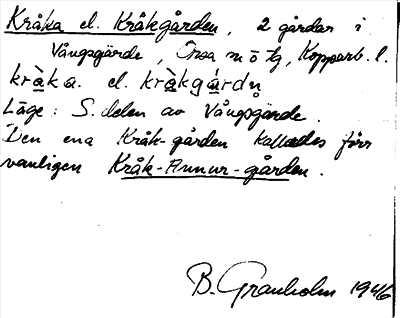 Kråka el. Kråkgården, 2 gårdar i
Vångsgärde, Orsa sn o tg, Kopparb. l.
kràka. el. kràkgárdn
Läge: S. delen av Vångsgärde.
Den ena Kråk-gården kallades förr
vanligen Kråk-Annur-gården.
B. Granholm 1946